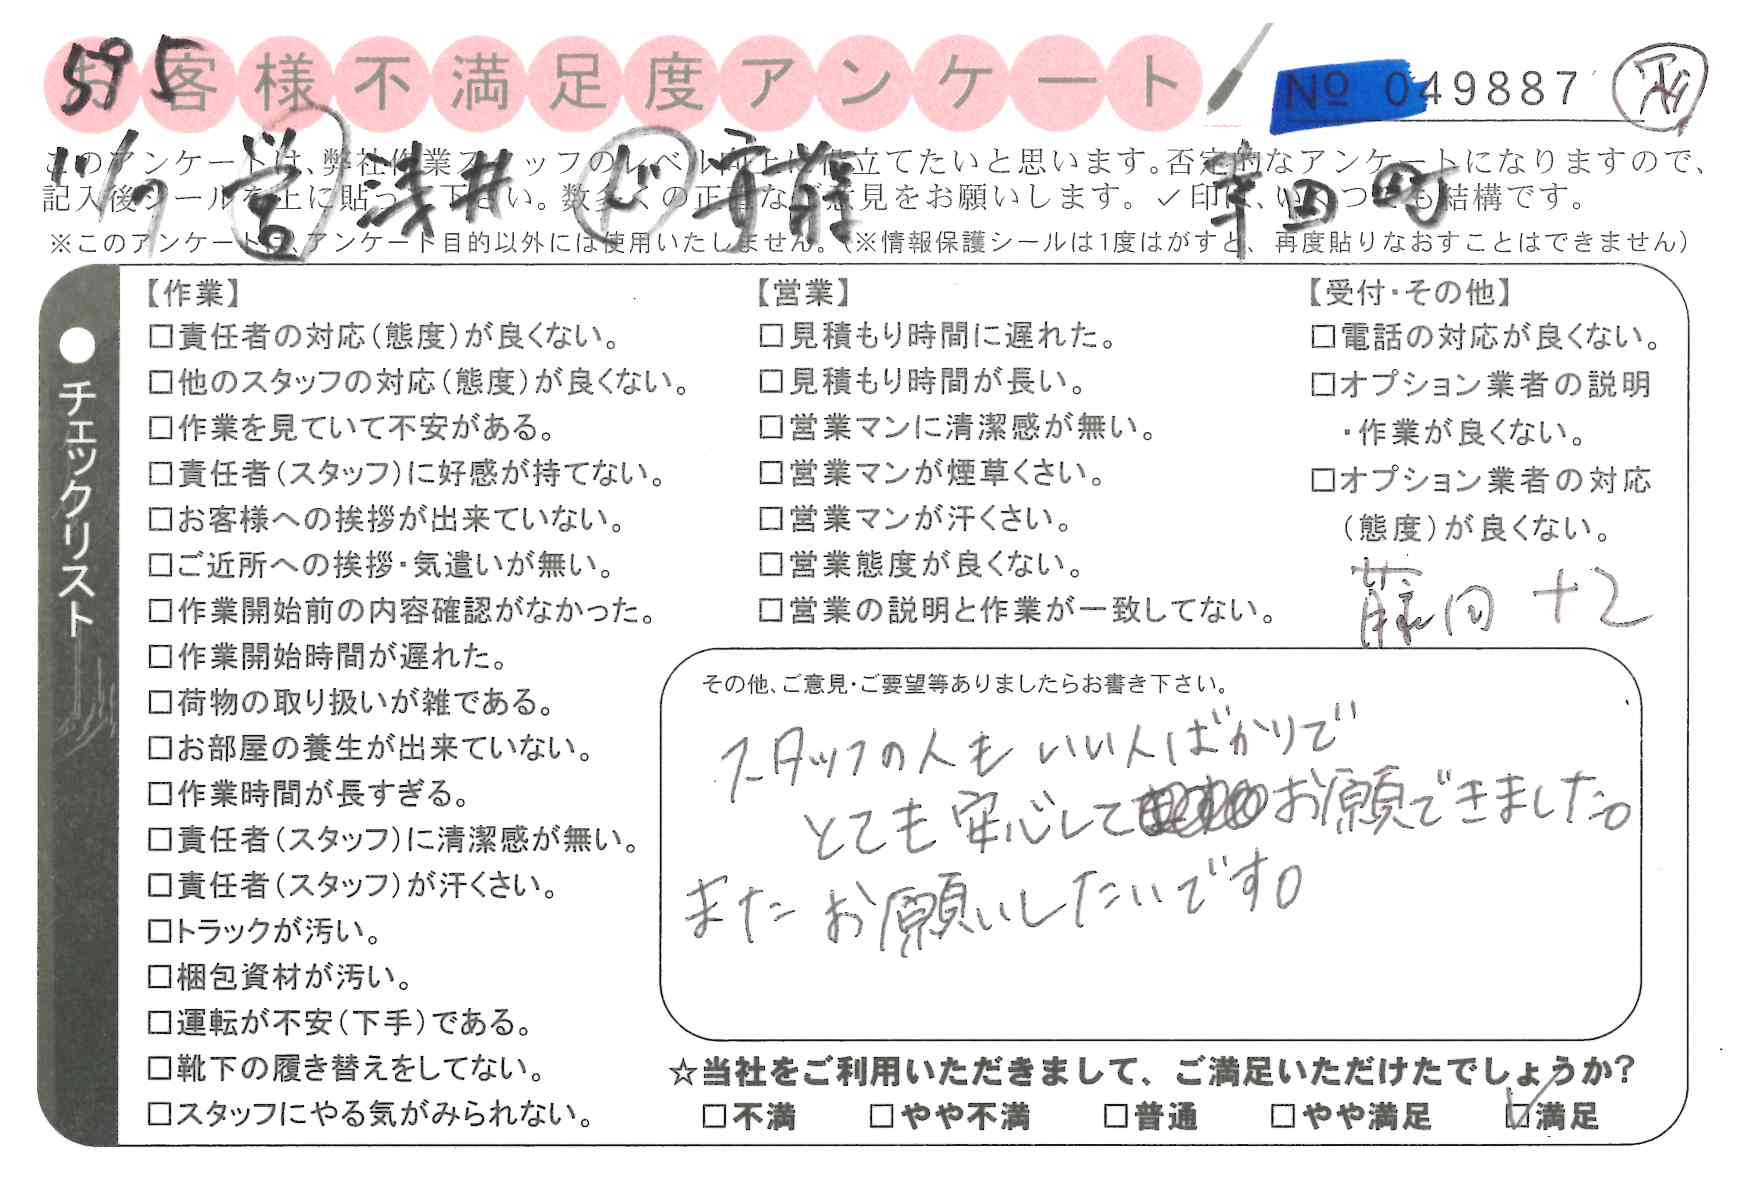 595
お客様不満足度アンケート
No 049887
11/7 営 浅井 安藤 半田町
このアンケートは、弊社作業スタッフのレベル向上に役立てたいと思います。否定的なアンケートになりますので、
記入後シールを上に貼って下さい。数多くの正直なご意見をお願いします。✓印は、いくつでも結構です。
※このアンケートは、アンケート目的以外には使用いたしません。(※情報保護シールは1度はがすと、再度貼りなおすことはできません)
●チェックリスト
【作業】
□責任者の対応(態度)が良くない。
□他のスタッフの対応(態度)が良くない。
□作業を見ていて不安がある。
□責任者(スタッフ)に好感が持てない。
□お客様への挨拶が出来ていない。
□ご近所への挨拶・気遣いが無い。
□作業開始前の内容確認がなかった。
□作業開始時間が遅れた。
□荷物の取り扱いが雑である。
□お部屋の養生が出来ていない。
□作業時間が長すぎる。
□責任者(スタッフ)に清潔感が無い。
□責任者(スタッフ)が汗くさい。
□トラックが汚い。
□梱包資材が汚い。
□運転が不安(下手)である。
□靴下の履き替えをしてない。
□スタッフにやる気がみられない。
【営業】
□見積もり時間に遅れた。
□見積もり時間が長い。
□営業マンに清潔感が無い。
□営業マンが煙草くさい。
□営業マンが汗くさい。
□営業態度が良くない。
□営業の説明と作業が一致してない。
【受付・その他】
□電話の対応が良くない。
□オプション業者の説明
・作業が良くない。
□オプション業者の対応
(態度)が良くない。
藤田 +2
その他、ご意見・ご要望等ありましたらお書き下さい。
スタッフの人も いい人ばかりで
とても安心して お願できました。
また お願いしたいです。
☆当社をご利用いただきまして、ご満足いただけたでしょうか?
□不満 □やや不満 □普通 □やや満足 ☑満足